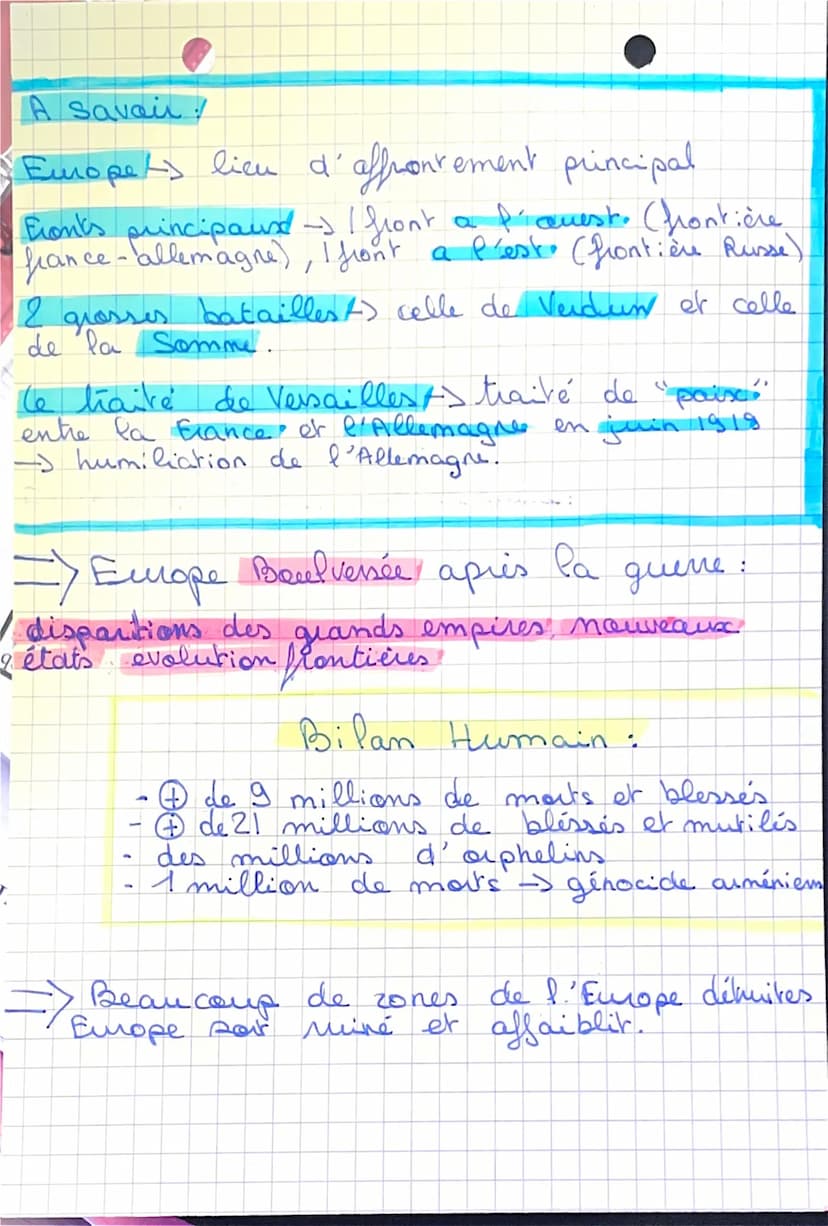 A savoir :
Europe → lieu d'affrontement principal
Fronts principaux → 1 front a l'ouest. (frontière
france-allemagne), 1 front a l'est. (frontière Russe)
2 grosses batailles → celle de Verdun et celle
de la Somme.
Le traité de Versailles → traité de "paix"
entre la France et l'Allemagne en juin 1919
→ humiliation de l'Allemagne.
⇒ Europe Boulversée après la guerre :
dispartions des grands empires, nouveaux
états. évolution frontières
Bilan Humain :
- ⊕ de 9 millions de morts et blessés
- ⊕ de 21 millions de bléssés et mutilés
- des millions d'orphelins
- 1 million de morts → génocide arménien
⇒ Beaucoup de zones de l'Europe détruites
Europe soit ruiné et affaiblit.